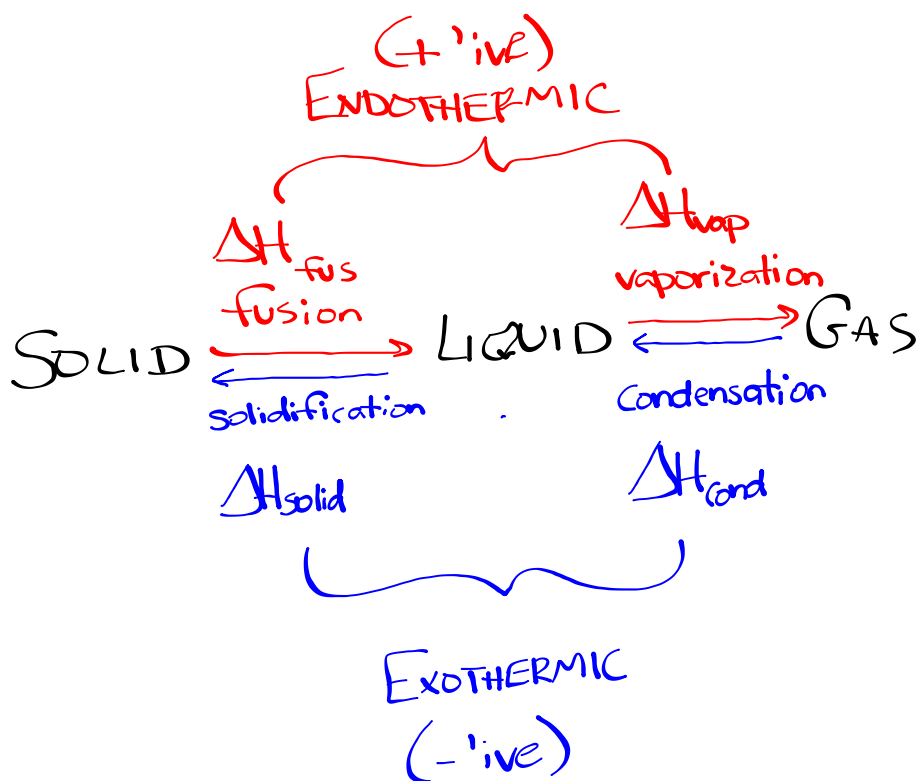 (+'ive)
ENDOTHERMIC
ΔHfus
fusion
ΔHvap
vaporization
SOLID
LIQUID
GAS
solidification
condensation
ΔHsolid
ΔHcond
EXOTHERMIC
(-'ive)